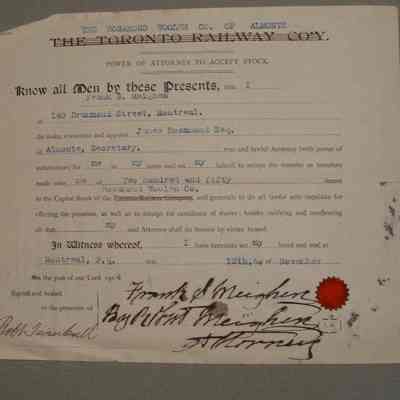 THE ROSAMOND WOOLEN CO. OF ALMONTE
THE TORONTO RAILWAY CO'Y.
POWER OF ATTORNEY TO ACCEPT STOCK.
Know all Men by these Presents, that I
Frank S. Meighen
of 140 Drummond Street, Montreal.
do make, constitute and appoint James Rosamond Esq.
of Almonte, Secretary. true and lawful Attorney (with power of
substitution) for me in my name and on my behalf, to accept the transfer or transfers
made unto me of Two hundred and fifty shares
Rosamond Woolen Co.
in the Capital Stock of the Toronto Railway Company, and generally to do all lawful acts requisite for
effecting the premises, as well as to receipt for certificate of shares; hereby ratifying and confirming
all that my said Attorney shall do herein by virtue hereof.
In Witness whereof, I have hereunto set my hand and seal at
Montreal, P.Q. the 12th, day of November
in the year of our Lord 190
Signed and sealed
in the presence of
Frank S Meighen
By Meighen
Attorney